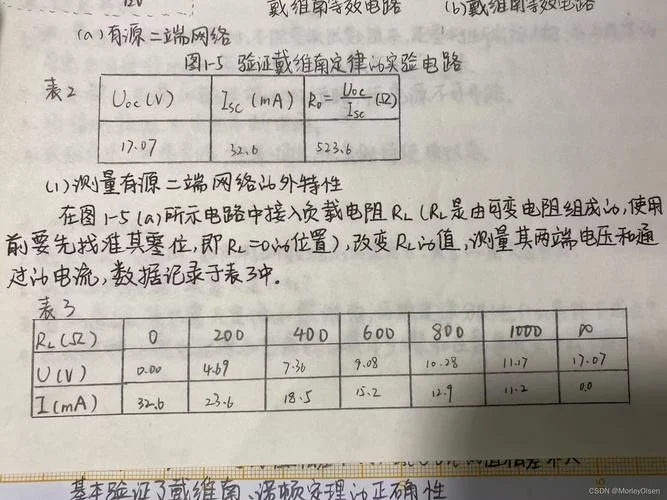 12V 戴维南等效电路 (b)戴维南等效电路
(a)有源二端网络
图1-5 验证戴维南定律的实验电路
表2
Uoc(V) Isc(mA) R0=Uoc/Isc(Ω)
17.07 32.6 523.6
(1)测量有源二端网络的外特性
在图1-5(a)所示电路中接入负载电阻RL(RL是由可变电阻组成的,使用
前要先找准其零位,即RL=0的位置),改变RL的值,测量其两端电压和通
过的电流,数据记录于表3中.
表3
RL(Ω) 0 200 400 600 800 1000 ∞
U(V) 0.00 4.69 7.36 9.08 10.28 11.17 17.07
I(mA) 32.6 23.6 18.5 15.2 12.9 11.2 0.0
基本验证了戴维南、诺顿定理的正确性
CSDN @MorleyOlsen